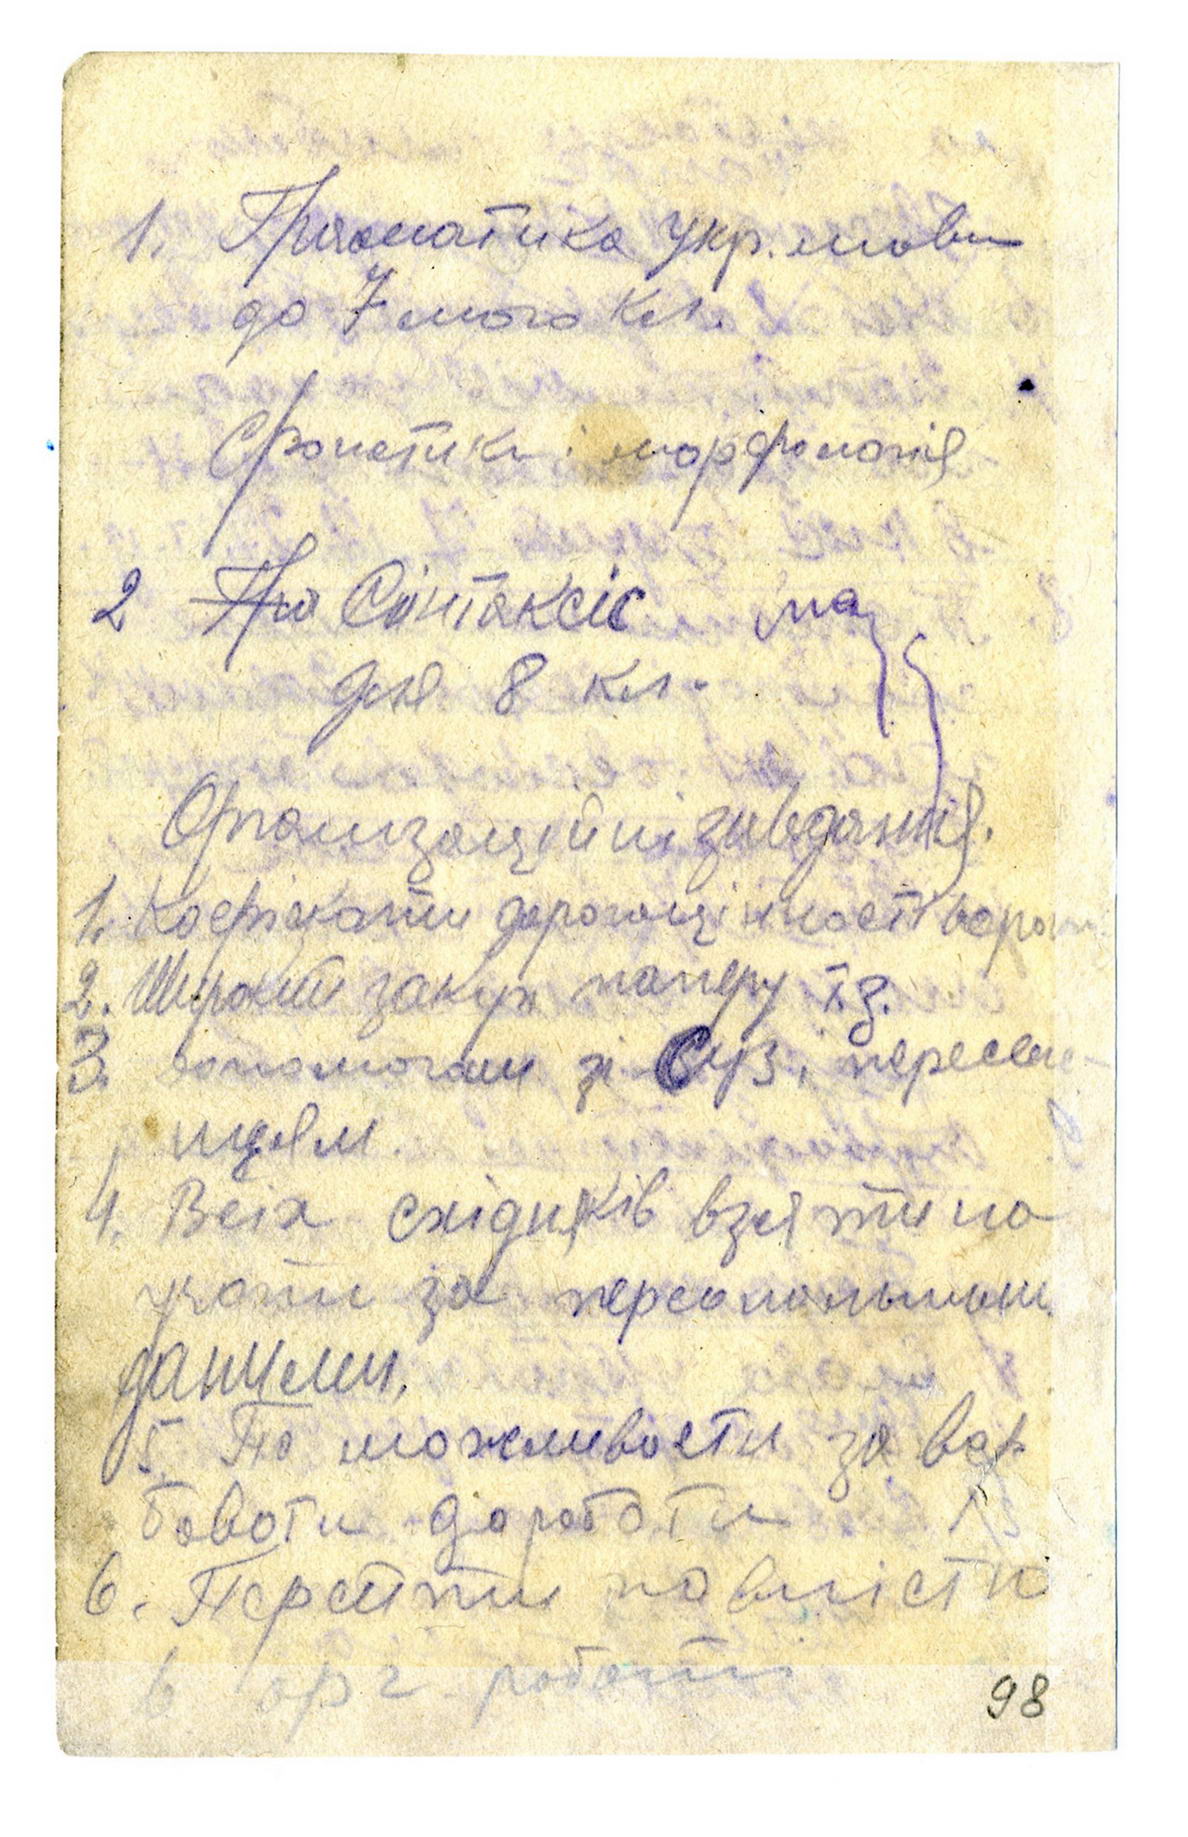 1. Граматика укр. мови
до 7 мого кл.
Фонетика і морфологія
2 Про Сінтаксіс
для 8 кл.
Організаційні завдання.
1. Кофіскати дорогоцінності
2. Широкий закуп паперу і т.д.
3. допомогти зі Суз. і пересе
нцям.
4. Всіх східняків взяти на
учоти за персональними
даними.
5. По можливости завер
бовати до роботи
6. Перейти повністю
в орг роботі
98